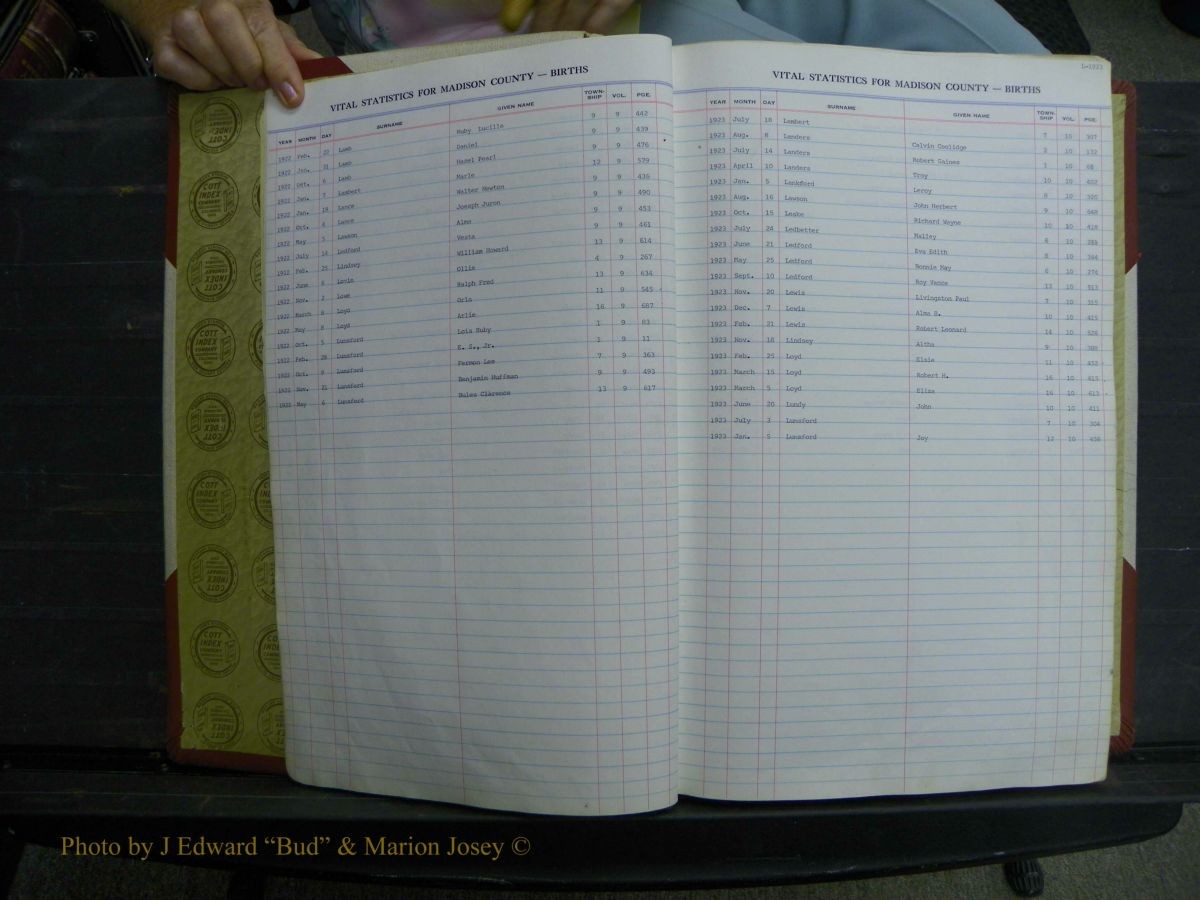 L-1923
VITAL STATISTICS FOR MADISON COUNTY — BIRTHS
YEAR MONTH DAY SURNAME GIVEN NAME TOWN-SHIP VOL. PGE.
1922 Feb. 22 Lamb Ruby Lucille 9 9 442
1922 Jan. 31 Lamb Daniel 9 9 439
1922 Oct. 6 Lamb Hazel Pearl 9 9 476
1922 Jan. 7 Lambert Marie 12 9 579
1922 Jan. 18 Lance Walter Newton 9 9 436
1922 Oct. 4 Lance Joseph Juron 9 9 490
1922 May 3 Lawson Alma 9 9 453
1922 July 14 Ledford Vesta 9 9 461
1922 Feb. 25 Lindsey William Howard 13 9 614
1922 June 6 Lovin Ollie 4 9 267
1922 Nov. 2 Lowe Ralph Fred 13 9 634
1922 March 8 Loyd Oris 11 9 545
1922 May 8 Loyd Arlie 16 9 687
1922 Oct. 5 Lunsford Lois Ruby 1 9 83
1922 Feb. 28 Lunsford E. S., Jr. 1 9 11
1922 Oct. 9 Lunsford Fermon Lee 7 9 363
1922 Nov. 21 Lunsford Benjamin Huffman 9 9 493
1922 May 6 Lunsford Bules Clarence 13 9 617
VITAL STATISTICS FOR MADISON COUNTY — BIRTHS
YEAR MONTH DAY SURNAME GIVEN NAME TOWN-SHIP VOL. PGE.
1923 July 18 Lambert 7 10 307
1923 Aug. 8 Landers Calvin Coolidge 2 10 132
1923 July 14 Landers Robert Gaines 10 68
1923 April 10 Landers Troy 10 10
1923 Jan. 5 Lankford Leroy 10
1923 Aug. 16 Lawson John Herbert 9 10
1923 Oct. 15 Leake Richard Wayne 10 10 418
1923 July 24 Ledbetter Malley 6 10
1923 June 21 Ledford Eva Edith 8 10 344
1923 May 25 Ledford Bonnie May 6 10 274
1923 Sept. 10 Ledford Roy Vance 13 10 513
1923 Nov. 20 Lewis Livingston Paul 7 10 315
1923 Dec. 7 Lewis Alma B. 10 10 425
1923 Feb. 21 Lewis Robert Leonard 14 10 526
1923 Nov. 18 Lindsey Altha 9 10
1923 Feb. 25 Loyd Elsie 11 10 452
1923 March 15 Loyd Robert H. 16 10 615
1923 March 5 Loyd Eliza 16 10 613
1923 June 20 Lundy John 10 10 411
1923 July 3 Lunsford 7 10 304
1923 Jan. 5 Lunsford Joy 12 10
COTT INDEX COMPANY
Photo by J Edward “Bud” & Marion Josey ©